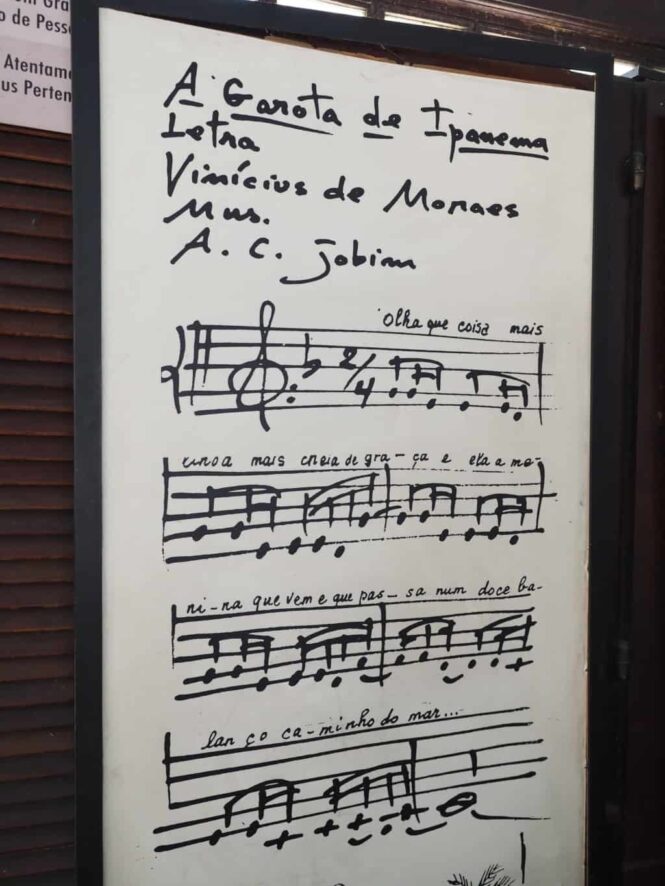 o de Pesso
Atentame
us Perten
A Garota de Ipanema
Letra
Vinícius de Moraes
Mus.
A. C. Jobim
Olha que coisa mais
2/4
linda mais cheia de gra-ça e ela a me-
ni-na que vem e que pas-sa num doce ba-
lan ço ca-minho do mar...